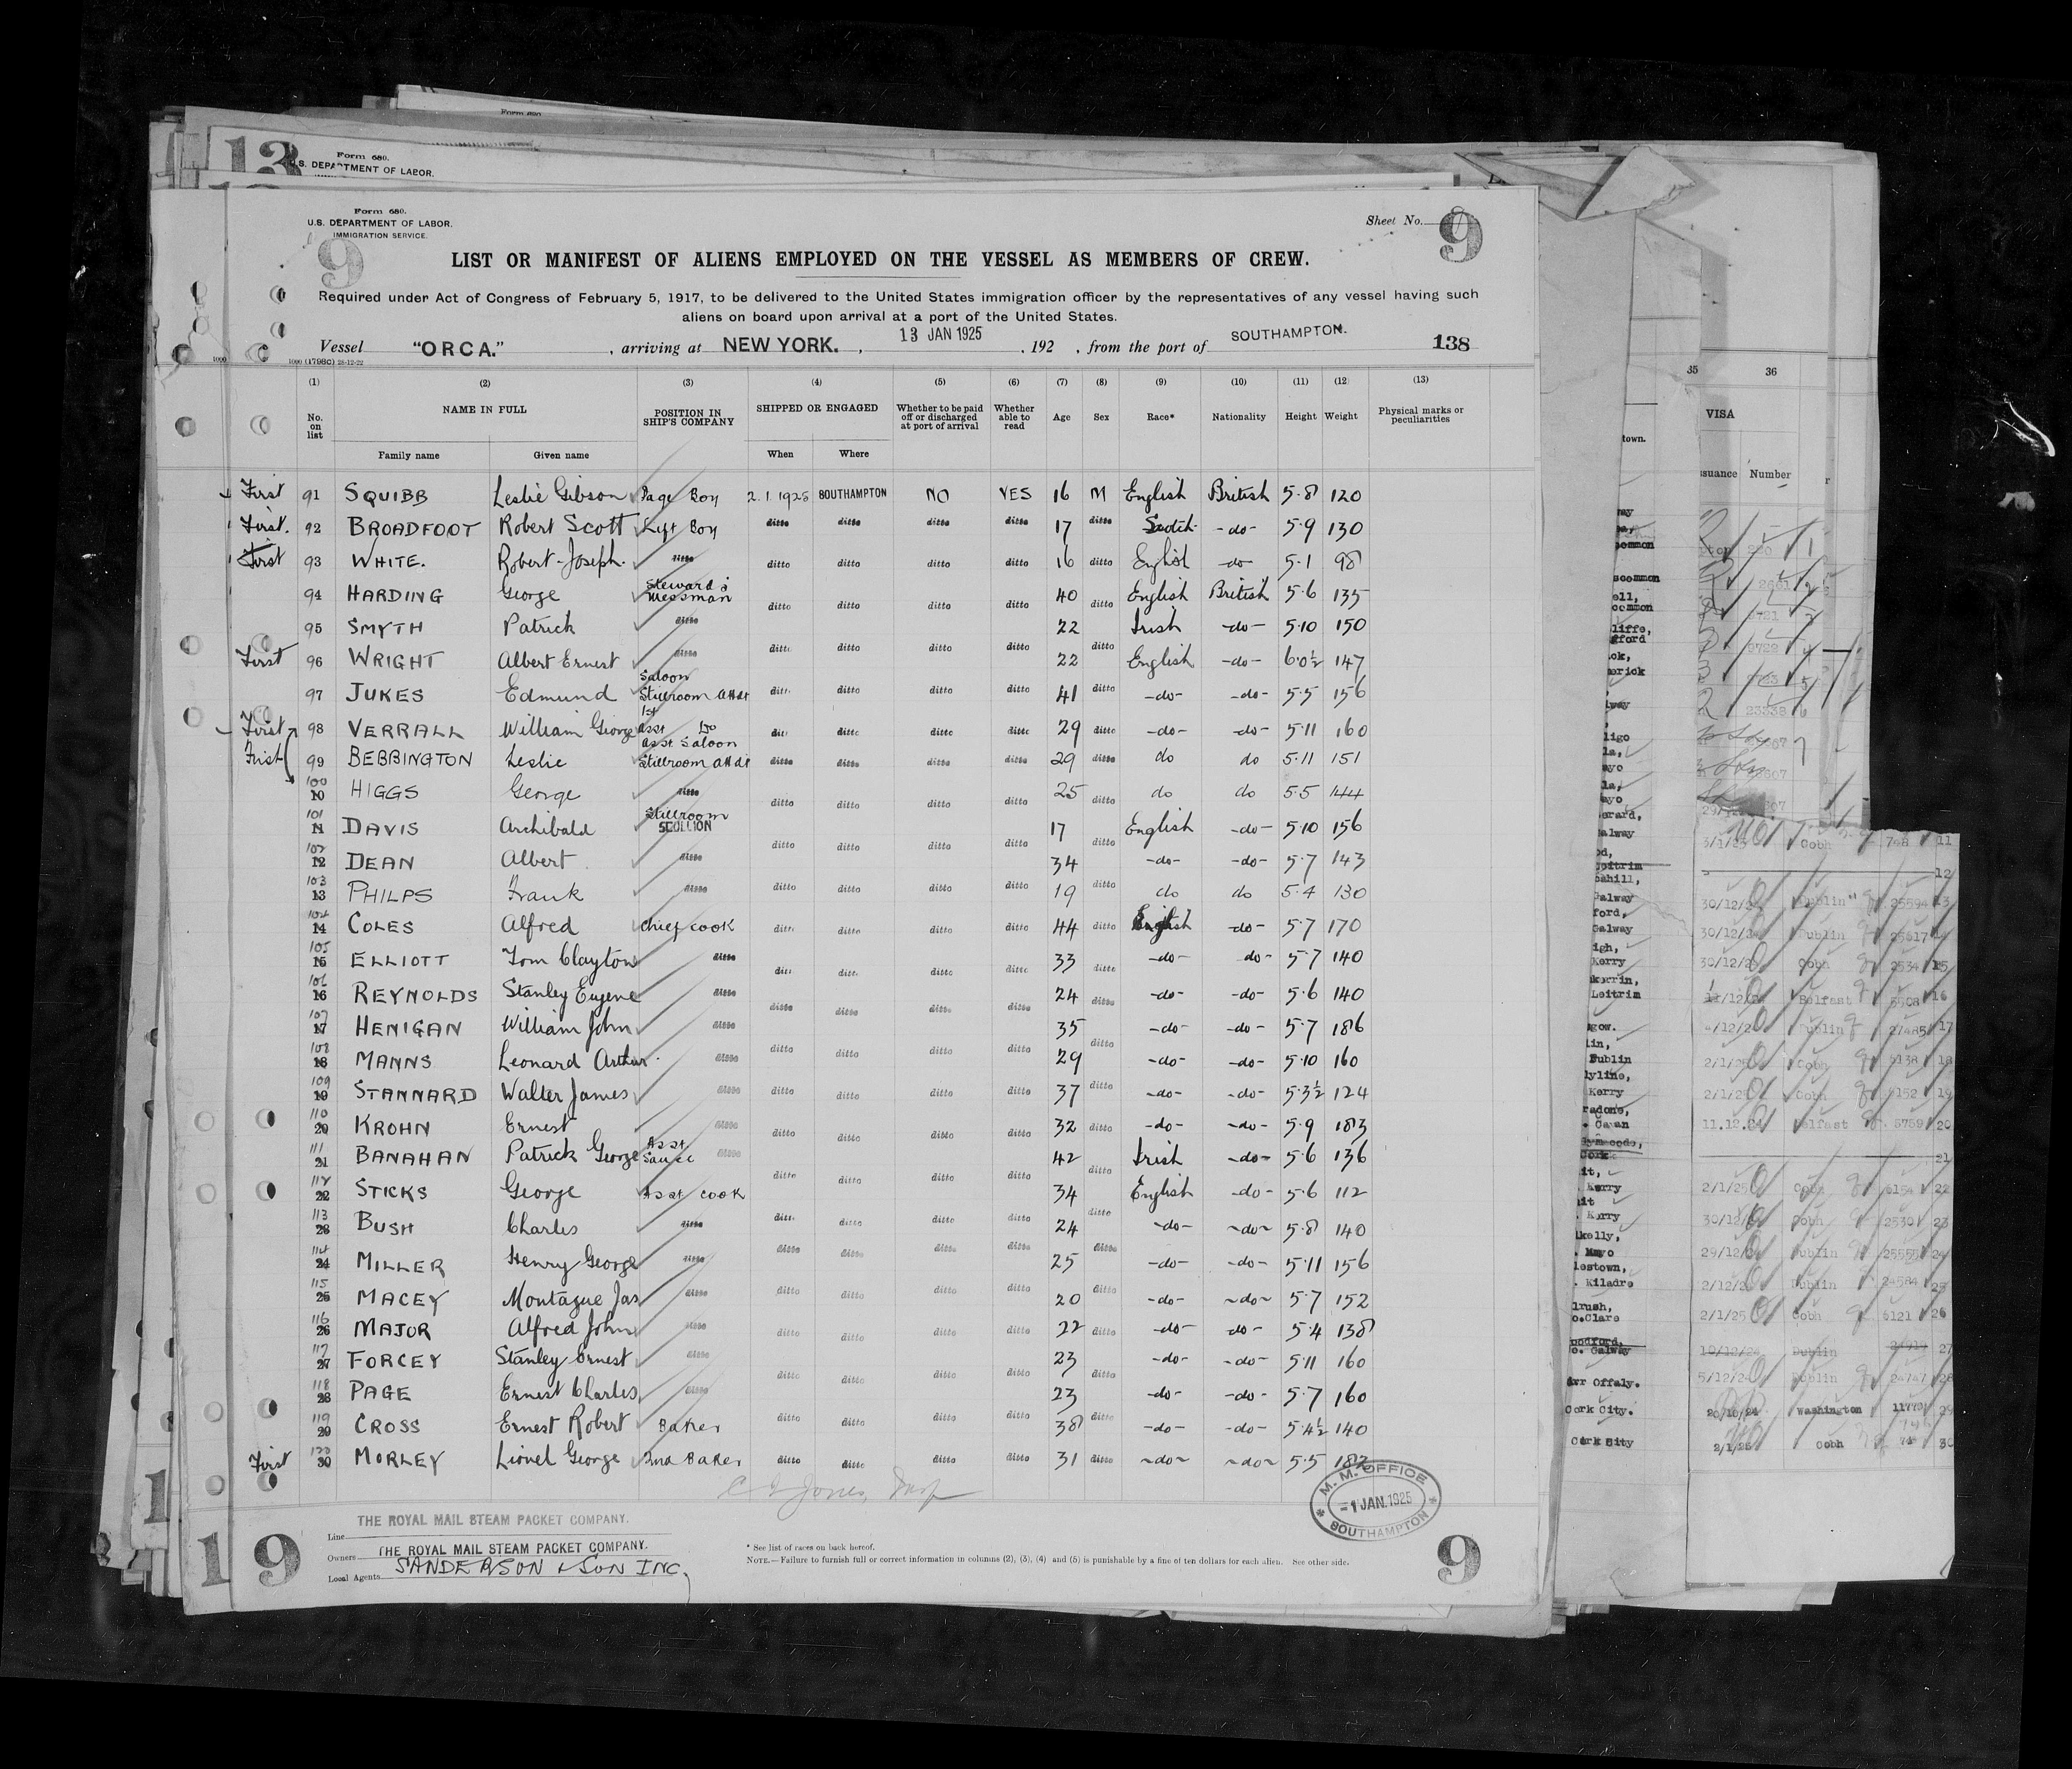 Form 680.
13
Form 680.
U.S. DEPARTMENT OF LABOR.
Form 680.
U.S. DEPARTMENT OF LABOR.
IMMIGRATION SERVICE.
Sheet No. 9
9
9
LIST OR MANIFEST OF ALIENS EMPLOYED ON THE VESSEL AS MEMBERS OF CREW.
Required under Act of Congress of February 5, 1917, to be delivered to the United States immigration officer by the representatives of any vessel having such
aliens on board upon arrival at a port of the United States.
Vessel "ORCA." , arriving at NEW YORK. , 13 JAN 1925 , 192 , from the port of SOUTHAMPTON. 138
1000 (1798C) 28-12-22
(1) (2) (3) (4) (5) (6) (7) (8) (9) (10) (11) (12) (13)
No. on list NAME IN FULL POSITION IN SHIP'S COMPANY SHIPPED OR ENGAGED Whether to be paid off or discharged at port of arrival Whether able to read Age Sex Race* Nationality Height Weight Physical marks or peculiarities
Family name Given name When Where
First 91 SQUIBB Leslie Gibson Page Boy 2.1.1925 SOUTHAMPTON NO YES 16 M English British 5·8 120
First. 92 BROADFOOT Robert Scott Lift Boy ditto ditto ditto ditto 17 ditto Scotch -do- 5·9 130
First 93 WHITE. Robert Joseph. ditto ditto ditto ditto ditto 16 ditto English -do- 5·1 98
94 HARDING George Steward's Messman ditto ditto ditto ditto 40 ditto English British 5·6 135
95 SMYTH Patrick ditto 22 Irish -do- 5·10 150
First 96 WRIGHT Albert Ernest ditto ditto ditto ditto ditto 22 ditto English -do- 6·0½ 147
97 JUKES Edmund Saloon Stillroom Attdt ditto ditto ditto ditto 41 ditto -do- -do- 5·5 156
First 98 VERRALL William George 1st Asst Do ditto ditto ditto ditto 29 ditto -do- -do- 5·11 160
First 99 BEBBINGTON Leslie Asst Saloon Stillroom Attdt ditto ditto ditto ditto 29 ditto do do 5·11 151
100 10 HIGGS George ditto ditto ditto ditto ditto 25 ditto do do 5·5 144
101 11 DAVIS Archibald Stillroom SCULLION 17 English -do- 5·10 156
102 12 DEAN Albert ditto ditto ditto ditto ditto 34 ditto -do- -do- 5·7 143
103 13 PHILPS Frank ditto ditto ditto ditto ditto 19 ditto do do 5·4 130
104 14 COLES Alfred Chief Cook ditto ditto ditto ditto 44 ditto English -do- 5·7 170
105 15 ELLIOTT Tom Clayton ditto 33 -do- -do- 5·7 140
106 16 REYNOLDS Stanley Eugene ditto ditto ditto ditto ditto 24 ditto -do- -do- 5·6 140
107 17 HENIGAN William John ditto ditto ditto ditto ditto 35 -do- -do- 5·7 186
108 18 MANNS Leonard Arthur ditto ditto ditto ditto ditto 29 ditto -do- -do- 5·10 160
109 19 STANNARD Walter James ditto ditto ditto ditto ditto 37 ditto -do- -do- 5·3½ 124
110 20 KROHN Ernest ditto ditto ditto ditto ditto 32 ditto -do- -do- 5·9 183
111 21 BANAHAN Patrick George Asst Sauce ditto 42 Irish -do- 5·6 136
112 22 STICKS George Asst Cook ditto ditto ditto ditto 34 ditto English -do- 5·6 112
113 23 BUSH Charles ditto ditto ditto ditto ditto 24 ditto -do- -do- 5·8 140
114 24 MILLER Henry George ditto ditto ditto ditto ditto 25 ditto -do- -do- 5·11 156
115 25 MACEY Montague Jas ditto ditto ditto ditto ditto 20 ditto -do- -do- 5·7 152
116 26 MAJOR Alfred John ditto ditto ditto ditto ditto 22 ditto -do- -do- 5·4 138
117 27 FORCEY Stanley Ernest ditto 23 -do- -do- 5·11 160
118 28 PAGE Ernest Charles ditto ditto ditto ditto ditto 23 ditto -do- -do- 5·7 160
119 29 CROSS Ernest Robert Baker ditto ditto ditto ditto 38 ditto -do- -do- 5·4½ 140
First 120 30 MORLEY Lionel George 2nd Baker ditto ditto ditto ditto 31 ditto -do- -do- 5·5 182
Jones,
M. M. OFFICE
1 JAN. 1925
SOUTHAMPTON
Line THE ROYAL MAIL STEAM PACKET COMPANY.
Owners THE ROYAL MAIL STEAM PACKET COMPANY.
Local Agents SANDERSON & SON INC.
* See list of races on back hereof.
NOTE.—Failure to furnish full or correct information in columns (2), (3), (4) and (5) is punishable by a fine of ten dollars for each alien. See other side.
19
9
35 36
VISA
Number
Galway
Kerry
Leitrim
Dublin
Kerry
Cork
Kerry
Kerry
Mayo
Galway
Offaly.
Cork City.
Cork City
3/1/25 Cobh 748 11
12
30/12/24 Dublin 25594 13
30/12/24 Dublin 25617 14
30/12/24 Cobh 2534 15
Belfast 5508 16
4/12/24 Dublin 27485 17
2/1/25 Cobh 5138 18
2/1/25 Cobh 5152 19
11.12.24 Belfast 5759 20
21
2/1/25 Cobh 6154 22
30/12/24 Cobh 2530 23
29/12/24 Dublin 25555 24
2/12/24 Dublin 24584 25
2/1/25 Cobh 6121 26
10/12/24 Dublin 27
5/12/24 Dublin 24747 28
20/10/24 Washington 29
2/1/25 Cobh 30